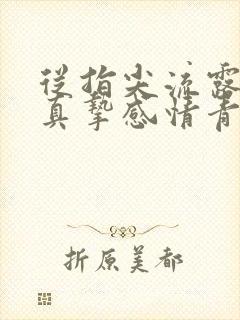 从指尖流露
真挚感情青
折原美都